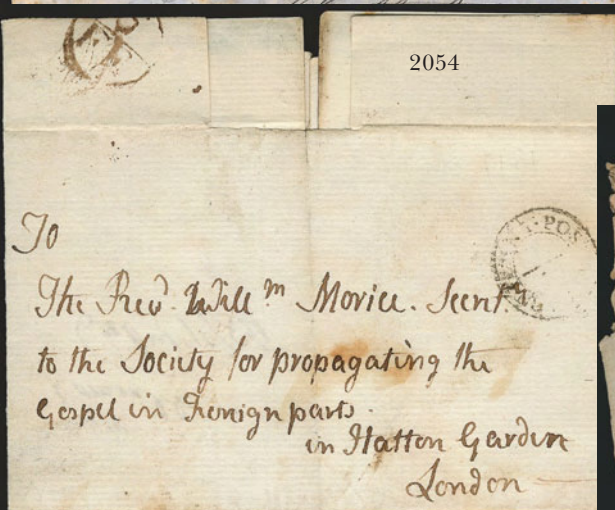 2054
To
The Revd. Willm Morice. Secrt.
to the Society for propagating the
Gospel in Foreign parts.
in Hatton Garden
London